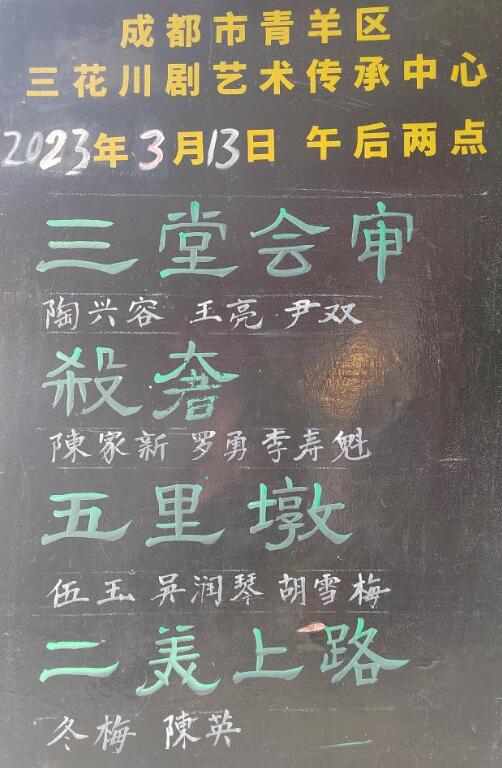 成都市青羊区
三花川剧艺术传承中心
2023年3月13日 午后两点
三堂会审
陶兴容 王亮 尹双
殺奢
陳家新 罗勇 李寿魁
五里墩
伍玉 吴润琴 胡雪梅
二美上路
冬梅 陳英